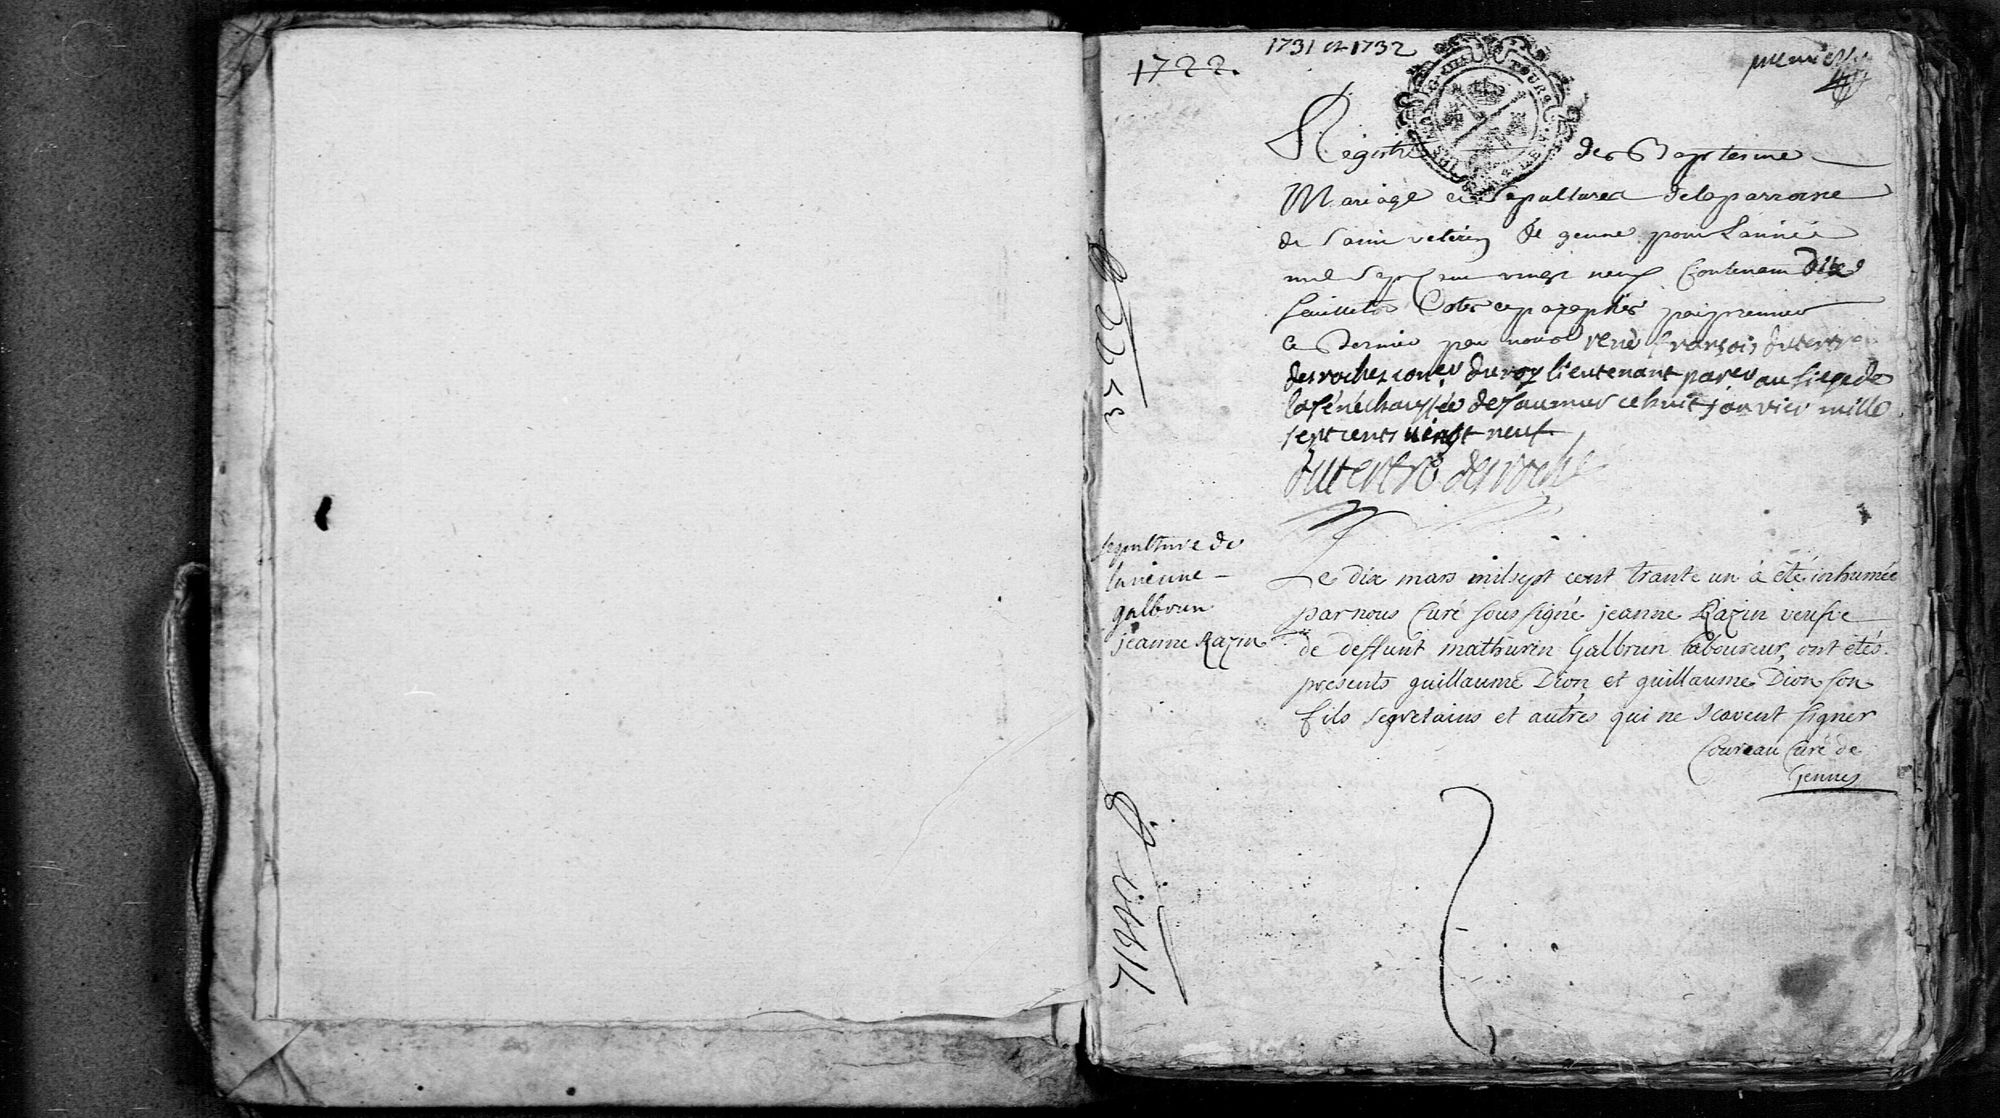 1722.
1731 et 1732
premier
Registre des Baptesme
Mariage et Sepultures de la parroisse
de Saint veterin de genne pour Lannée
mil Sept cent vingt neuf Contenant dix
feuillets Cotes et paraphés par premier
et Dernier par nous rené françois dutertre
desroches coner du roy lieutenant parer au siege de
la sénéchaussée de saumur ce huit janvier mille
sept cents vingt neuf
dutertre desroches
sepulture de
la veuve
galbrun
jeanne Razin
Le dix mars mil sept cent trante un a été inhumée
par nous Curé sous signé jeanne Razin veufve
de deffunt mathurin Galbrun laboureur, ont étés
présents guillaume Dion et guillaume Dion son
fils segretains et autres qui ne scavent signer
Coureau Curé de
Gennes